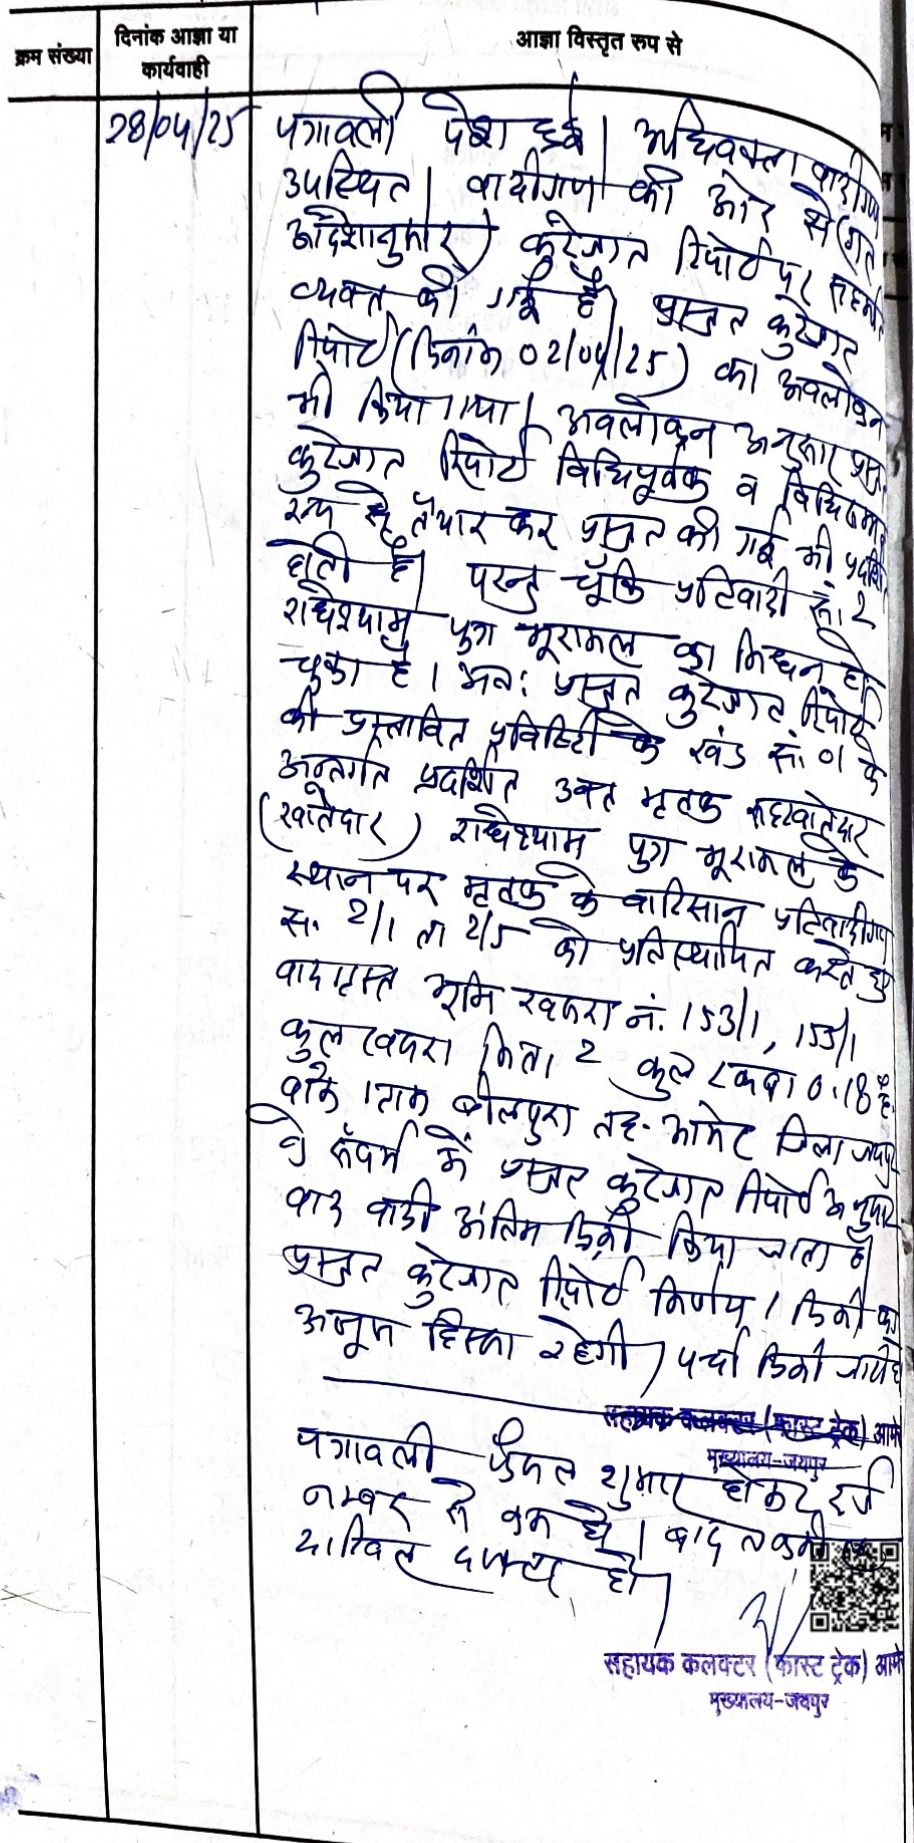 क्रम संख्या
दिनांक आज्ञा या
कार्यवाही
आज्ञा विस्तृत रूप से
28/04/25
पत्रावली पेश हुई। अधिवक्ता वादीगण
उपस्थित। वादीगण की ओर से (गत
आदेशानुसार) कुर्रेजात रिपोर्ट पर सहमति
व्यक्त की गई है। प्रस्तुत कुर्रेजात
रिपोर्ट (दिनांक 02/04/25) का अवलोकन
भी किया गया। अवलोकन अनुसार प्रस्तुत
कुर्रेजात रिपोर्ट विधिपूर्वक व विधिसम्मत
रूप से तैयार कर प्रस्तुत की गई भी प्रदर्शित
होती है। परन्तु चूँकि प्रतिवादी सं. 2
राधेश्याम पुत्र भूरामल का निधन हो
चुका है। अतः प्रस्तुत कुर्रेजात रिपोर्ट
की प्रस्तावित प्रविष्टि के खंड सं. 01 के
अन्तर्गत प्रदर्शित उक्त मृतक सहखातेदार
(खातेदार) राधेश्याम पुत्र भूरामल के
स्थान पर मृतक के वारिसान प्रतिवादीगण
सं. 2/1 ता 2/5 को प्रतिस्थापित करते हुए
वादग्रस्त भूमि खसरा नं. 153/1, 155/1
कुल खसरा किता 2 कुल रकबा 0.18 है.
वाके ग्राम बीलपुरा तह. आमेर जिला जयपुर
के संदर्भ में प्रस्तुत कुर्रेजात रिपोर्ट अनुसार
वाद वादी अंतिम डिक्री किया जाता है।
प्रस्तुत कुर्रेजात रिपोर्ट निर्णय / डिक्री का
अजूम हिस्सा रहेगी। पर्चा डिक्री जारी हो
सहायक कलक्टर (फास्ट ट्रेक) आमेर
मुख्यालय-जयपुर
पत्रावली फैसल शुमार होकर दर्ज
नम्बर से कम हो। बाद तकमील
दाखिल दफ्तर हो।
सहायक कलक्टर (फास्ट ट्रेक) आमेर
मुख्यालय-जयपुर